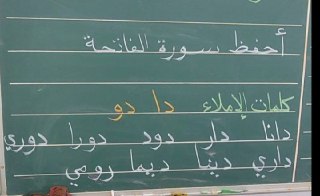 أحفظ سورة الفاتحة
كلمات الإملاء دا دو
دانا دار دود دورا دوري
داري دنيا ديما رومي